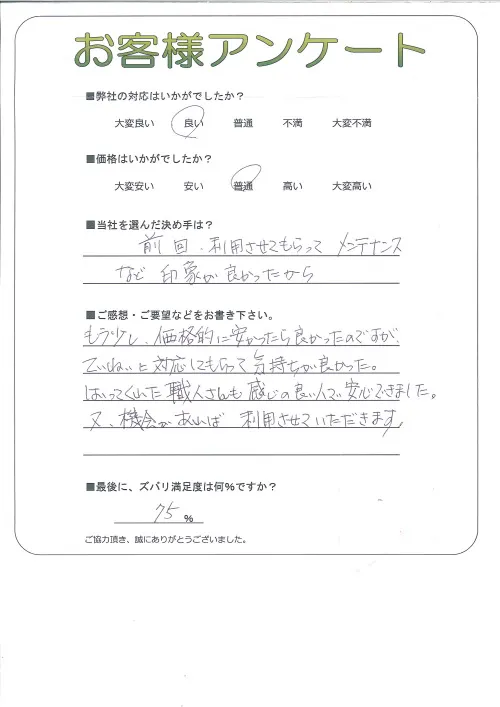 お客様アンケート
■弊社の対応はいかがでしたか？
大変良い 良い 普通 不満 大変不満
■価格はいかがでしたか？
大変安い 安い 普通 高い 大変高い
■当社を選んだ決め手は？
前回、利用させてもらって メンテナンス
など 印象が良かったから
■ご感想・ご要望などをお書き下さい。
もう少し、価格的に安かったら良かったのですが、
ていねいに対応してもらって気持ちが良かった。
はいってくれた職人さんも感じの良い人で安心できました。
又、機会があれば 利用させていただきます。
■最後に、ズバリ満足度は何%ですか？
75 %
ご協力頂き、誠にありがとうございました。